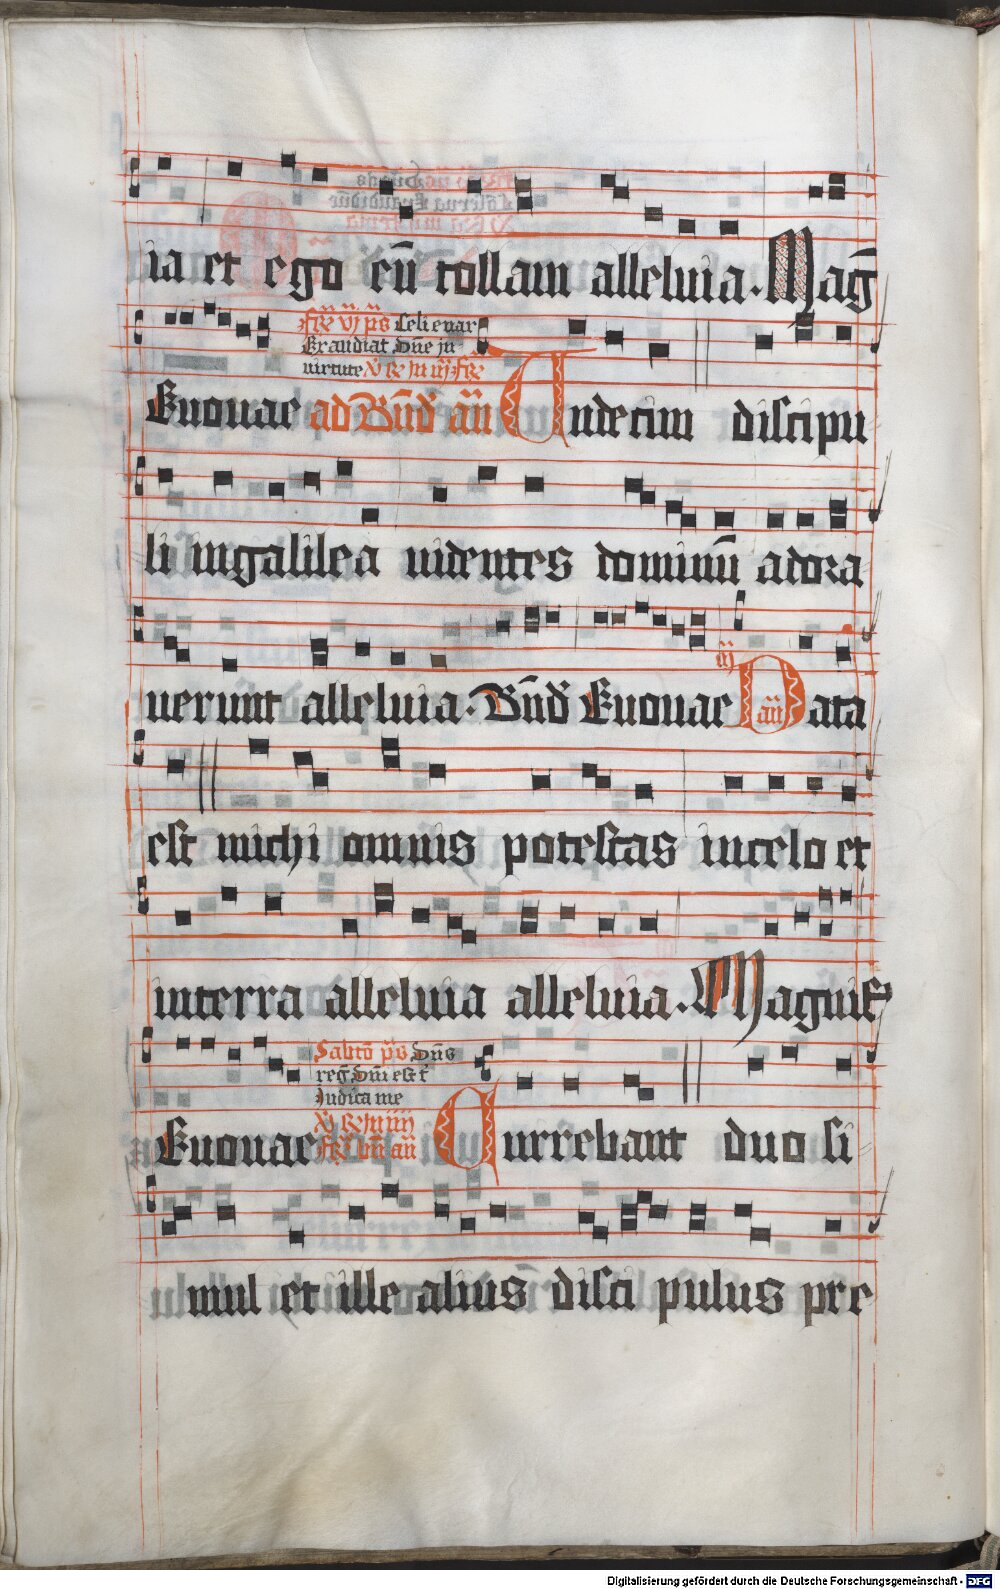 ia et ego eū tollam alleluia. Mag̅
Celi enar
Exaudiat dn̄e in
uirtute
Euouae ad Bn̄d̄ an̄ Undecim discipu
li ingalilea uidentes dominū adora
uerunt alleluia. Bn̄d̄ Euouae an̄ Data
est michi omnis potestas incelo et
interra alleluia alleluia. Magnif̄
Sabtō ps̄ Dn̄s
reg̅ Dn̄i est t̄
Iudica me
Euouae Currebant duo si
mul et ille alius disci pulus pre
Digitalisierung gefördert durch die Deutsche Forschungsgemeinschaft - DFG